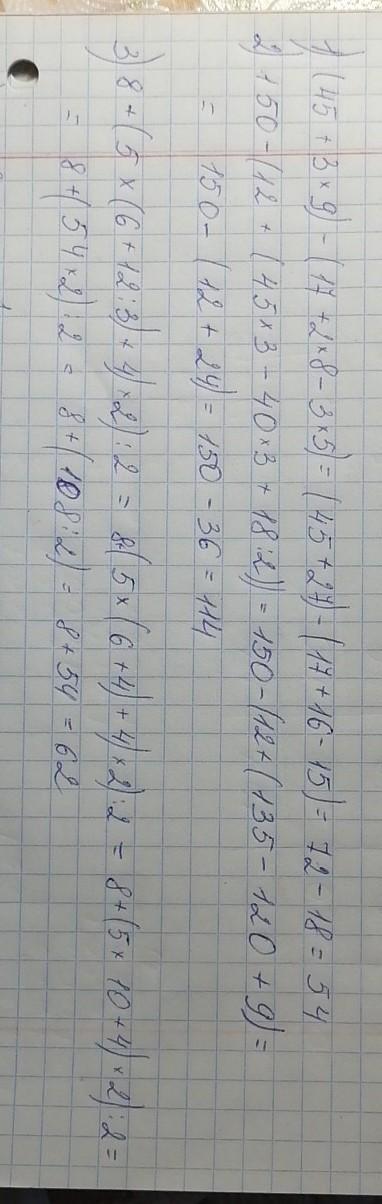 1) (45 + 3 × 9) - (17 + 2 × 8 - 3 × 5) = (45 + 27) - (17 + 16 - 15) = 72 - 18 = 54
2) 150 - (12 + (45 × 3 - 40 × 3 + 18 : 2)) = 150 - (12 + (135 - 120 + 9) =
= 150 - (12 + 24) = 150 - 36 = 114
3) 8 + (5 × (6 + 12 : 3) + 4) × 2) : 2 = 8 + (5 × (6 + 4) + 4) × 2) : 2 = 8 + (5 × 10 + 4) × 2) : 2 =
= 8 + (54 × 2) : 2 = 8 + (108 : 2) = 8 + 54 = 62